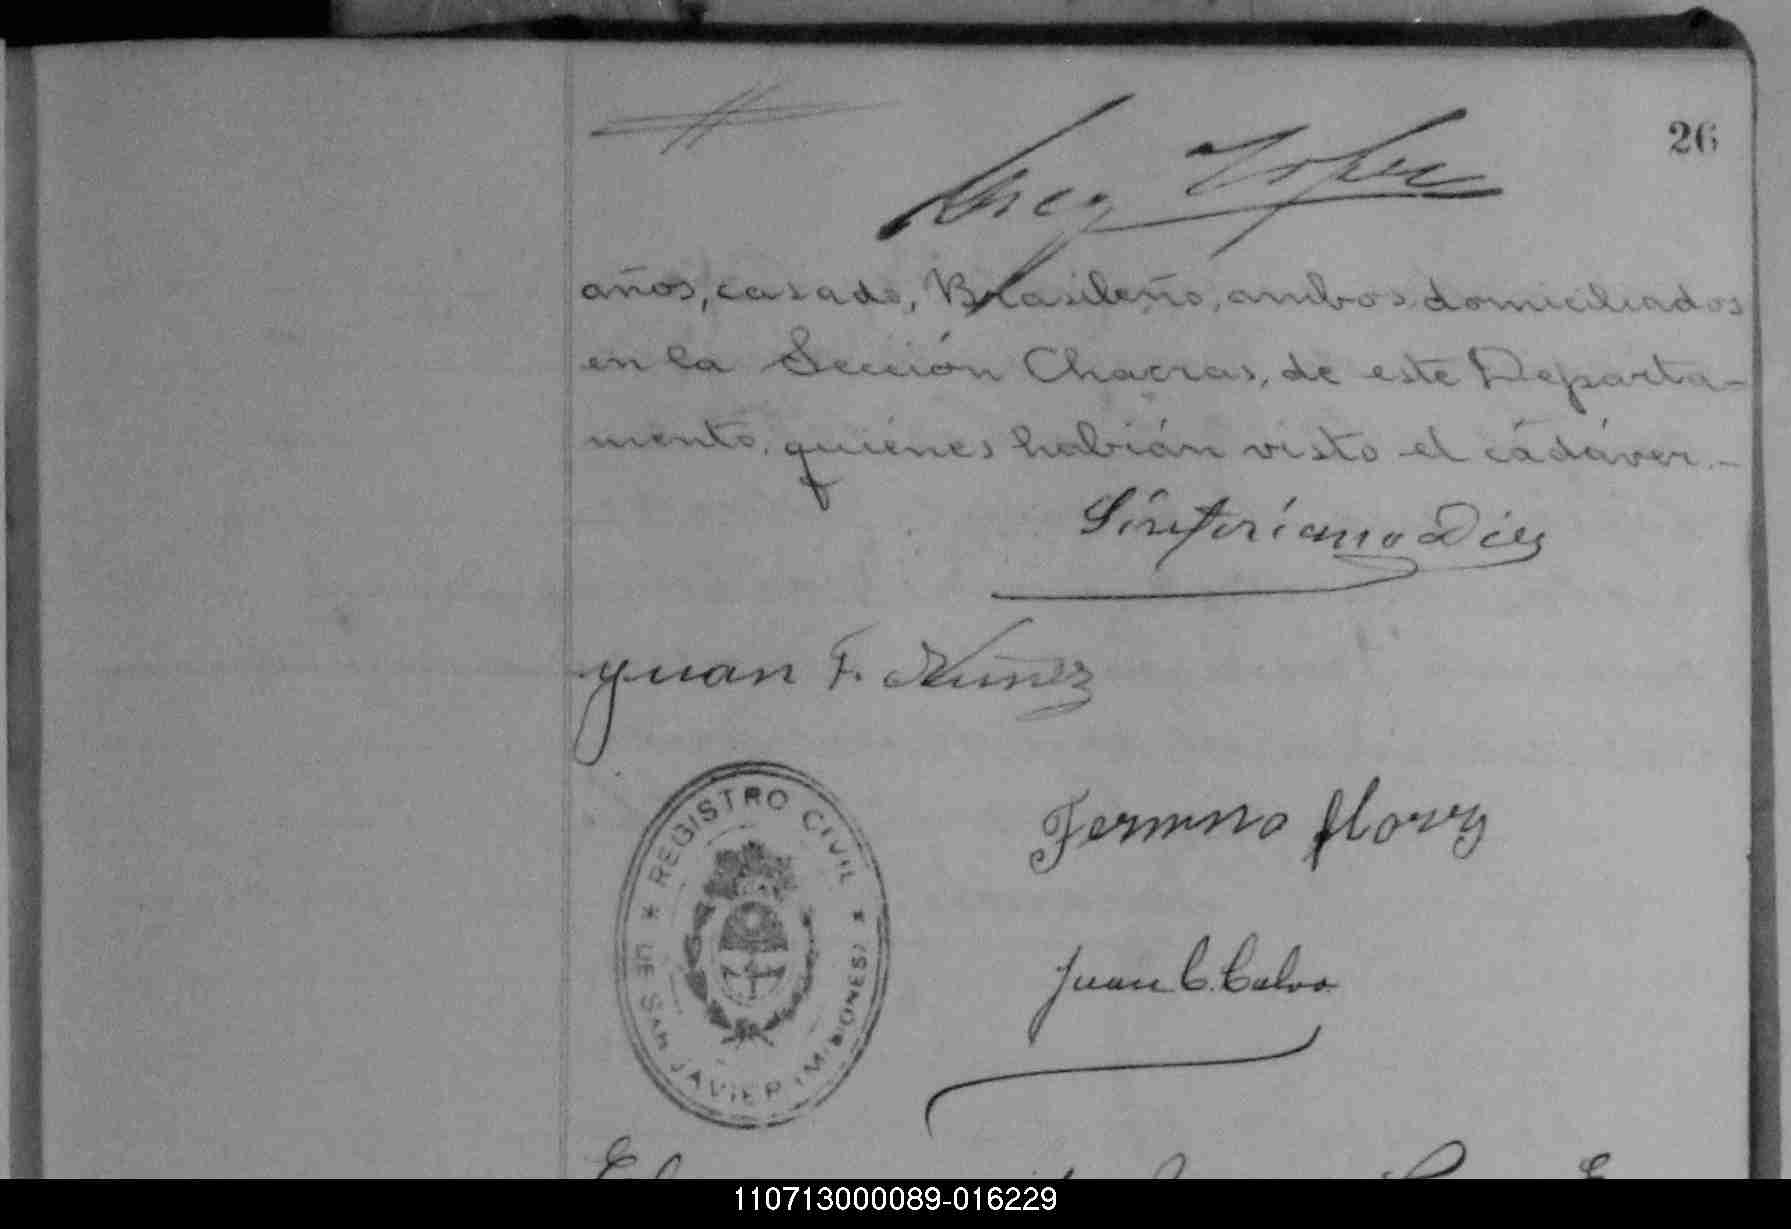 26
Lopez
años, casado, Brasileño, ambos domiciliados
en la Sección Chacras, de este Departa-
mento, quiénes habián visto el cádáver.-
Sinforiano Diez
Juan F. Núñez
Fermino flory
Juan C. Calvo
* REGISTRO CIVIL *
DE SAN JAVIER (MISIONES)
110713000089-016229